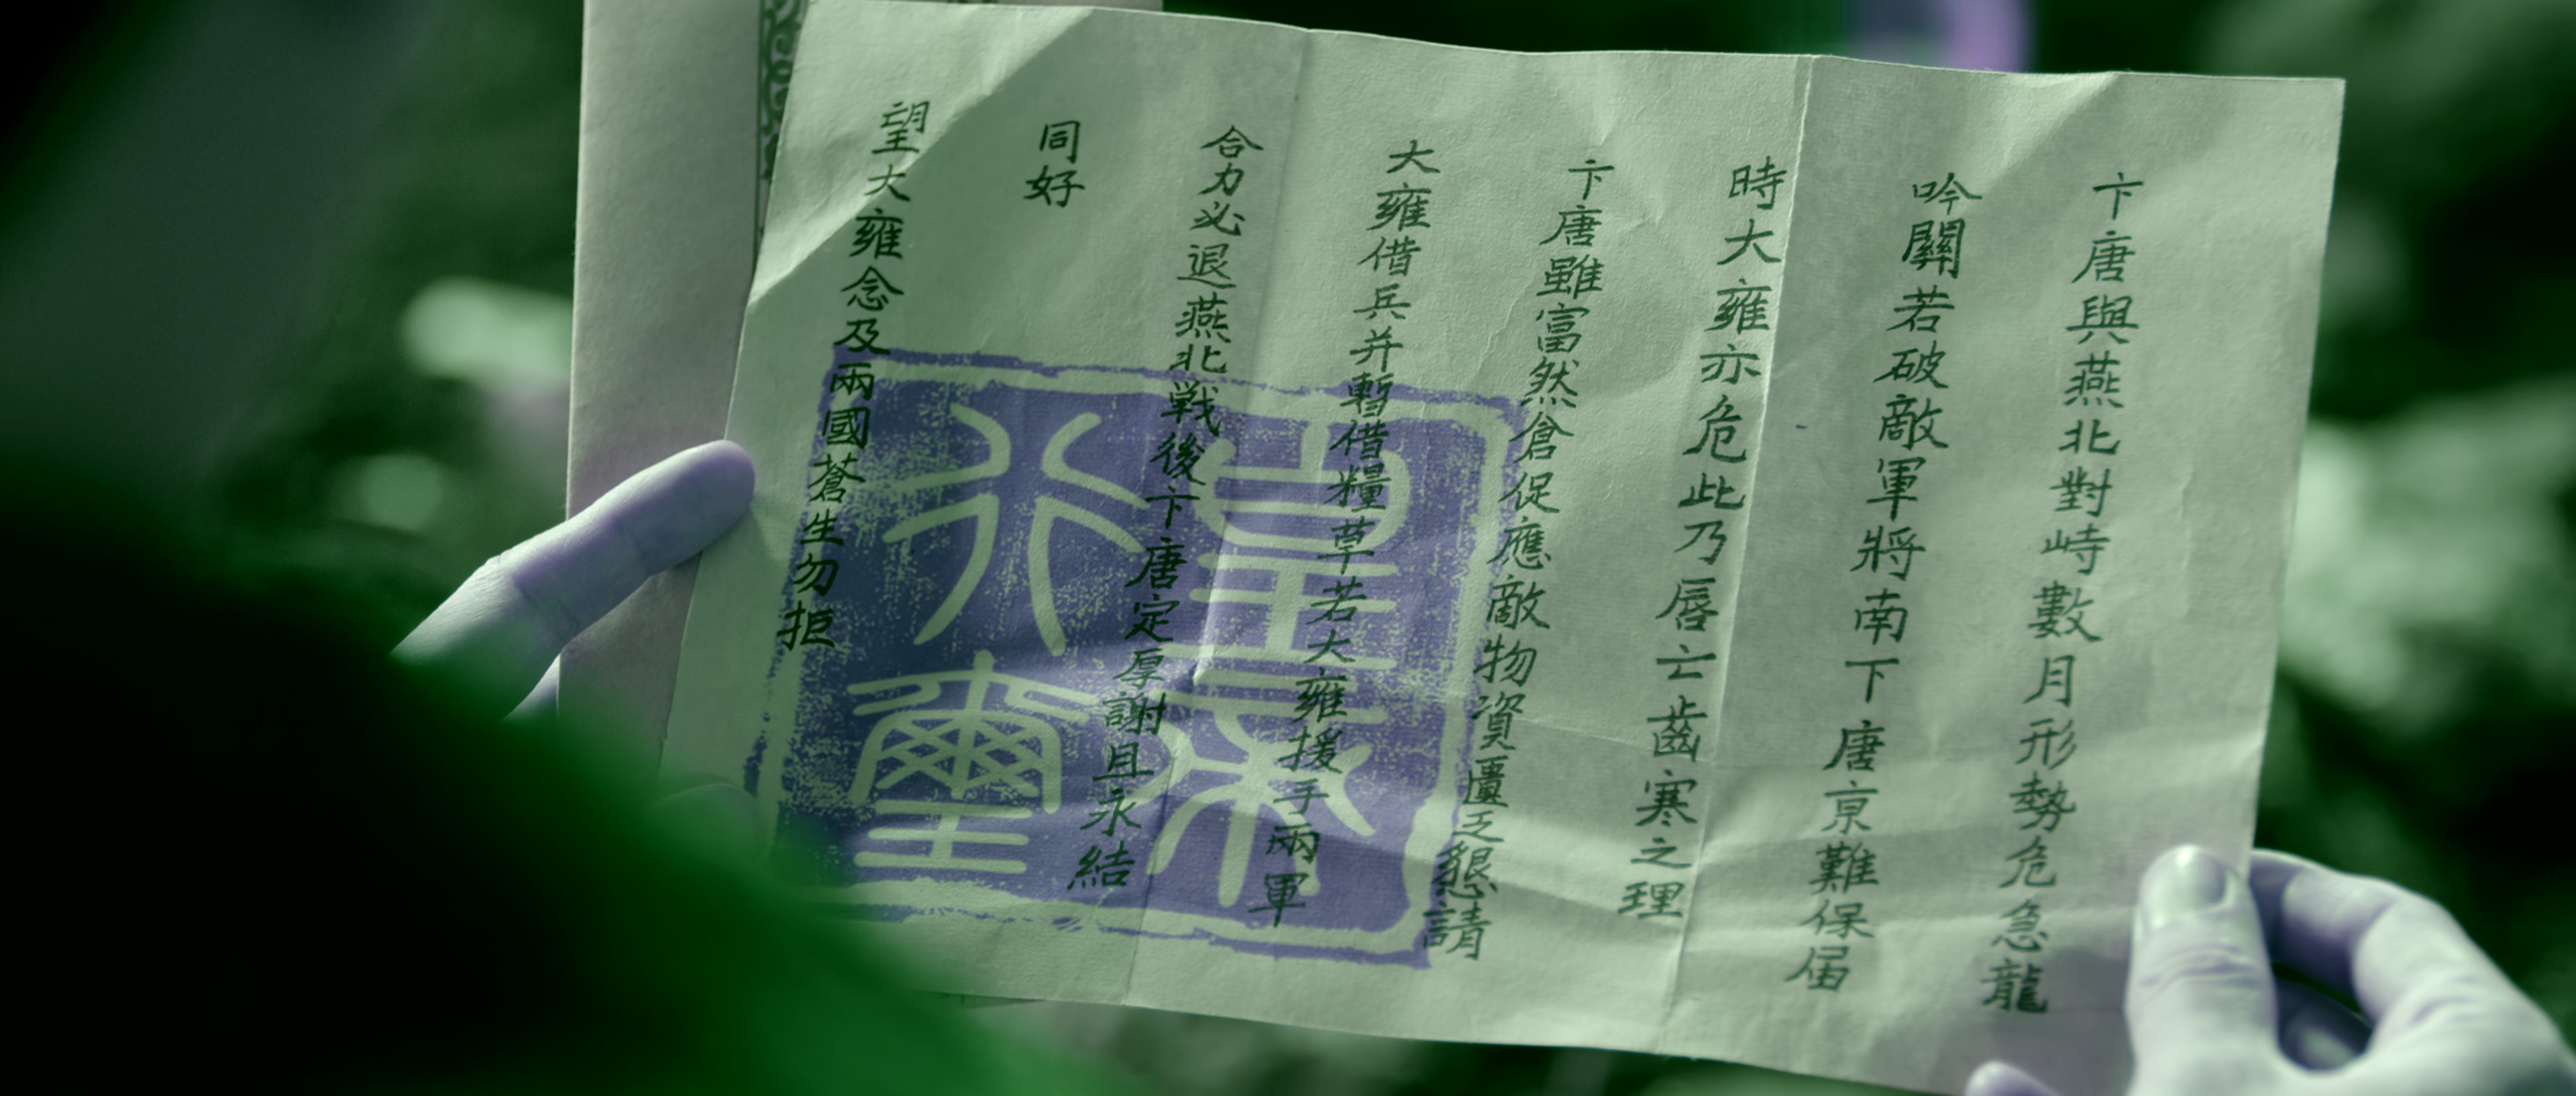 卞唐與燕北對峙數月形勢危急龍
吟關若破敵軍將南下唐京難保届
時大雍亦危此乃唇亡齒寒之理
卞唐雖富然倉促應敵物資匱乏懇請
大雍借兵并暫借糧草若大雍援手兩軍
合力必退燕北戰後卞唐定厚謝且永結
同好
望大雍念及兩國蒼生勿拒
皇帝
行璽